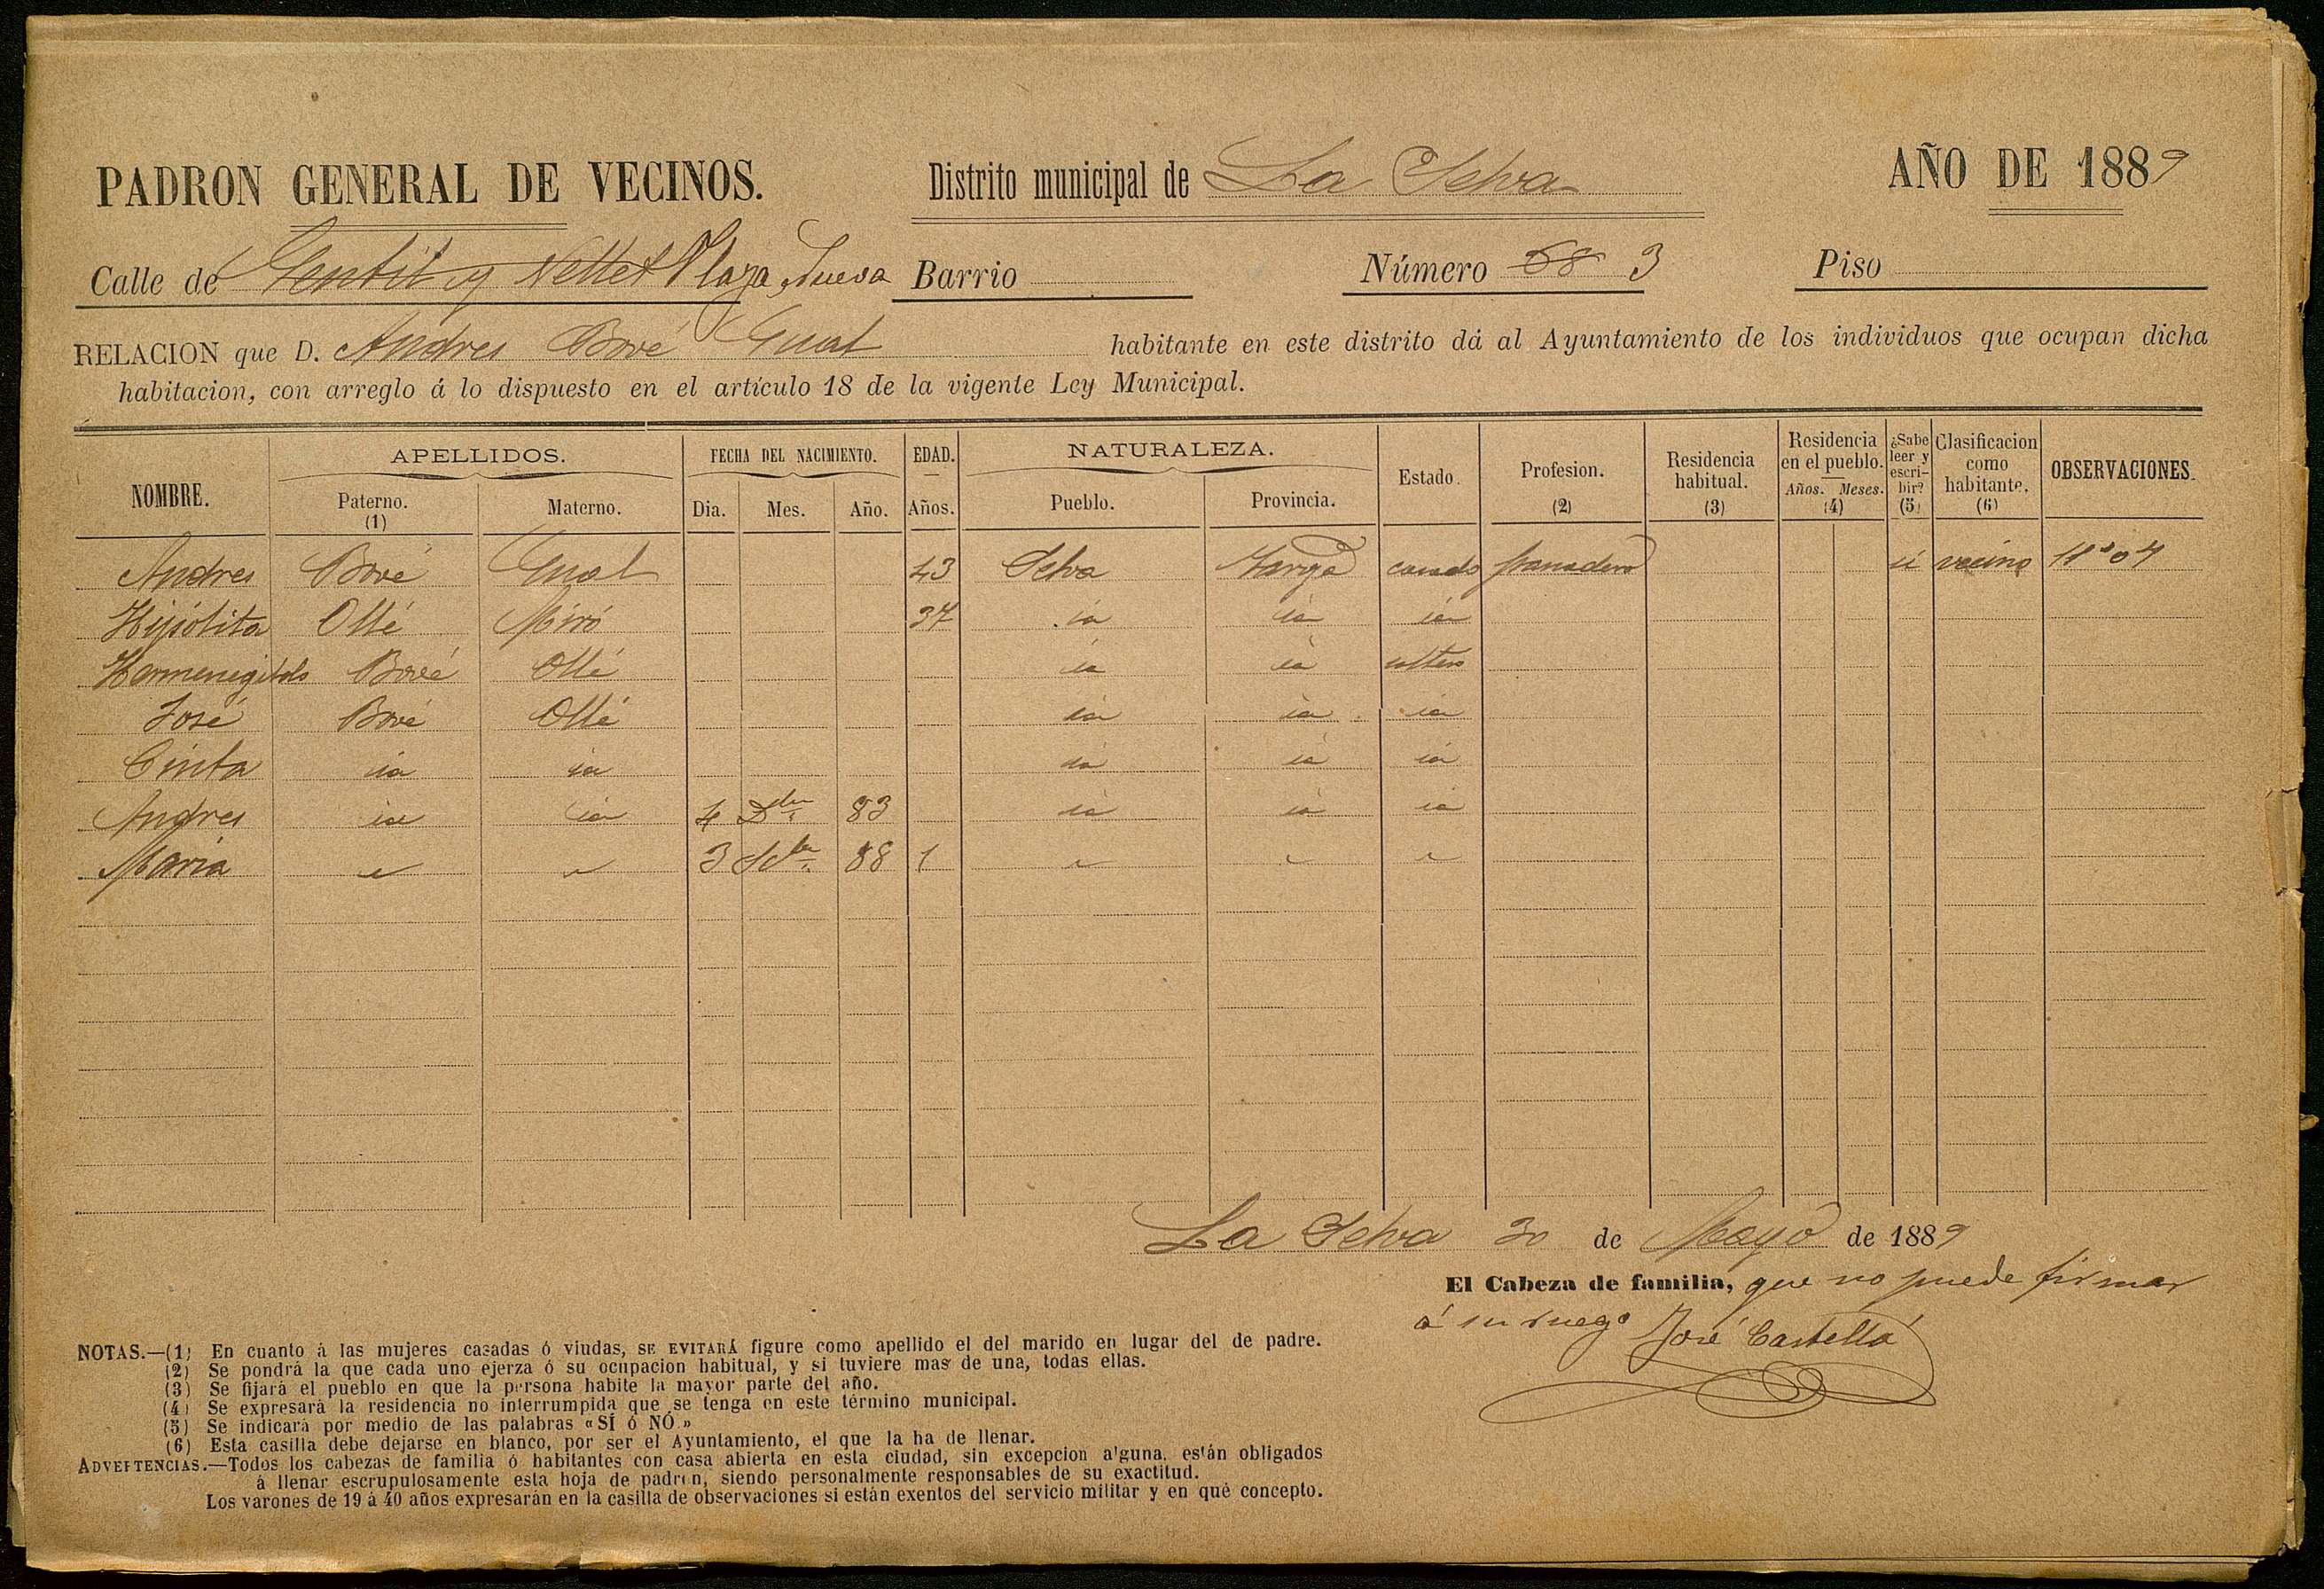 PADRON GENERAL DE VECINOS. Distrito municipal de La Selva AÑO DE 1889
Calle de Gentil y Vellet Plaza Nueva Barrio Número 68 3 Piso
RELACION que D. Andres Bové Gual habitante en este distrito dá al Ayuntamiento de los individuos que ocupan dicha
habitacion, con arreglo á lo dispuesto en el artículo 18 de la vigente Ley Municipal.
NOMBRE. APELLIDOS. FECHA DEL NACIMIENTO. EDAD. NATURALEZA. Estado. Profesion. (2) Residencia habitual. (3) Residencia en el pueblo. (4) ¿Sabe leer y escribir? (5) Clasificacion como habitante. (6) OBSERVACIONES.
Paterno. (1) Materno. Dia. Mes. Año. Años. Pueblo. Provincia. Años. Meses.
Andres Bové Gual 43 Selva Tarrgª casado panadero si vecino
Hipólita Ollé Miró 37 id id id
Hermenegildo Bové Ollé id id soltero
José Bové Ollé id id id
Cinta id id id id id
Andres id id 4 Dbre 83 id id id
Maria 3 88 1
La Selva 30 de Mayo de 1889
El Cabeza de familia, que no puede firmar
á su ruego José Castellá
NOTAS.—(1) En cuanto á las mujeres casadas ó viudas, SE EVITARÁ figure como apellido el del marido en lugar del de padre.
(2) Se pondrá la que cada uno ejerza ó su ocupacion habitual, y si tuviere mas de una, todas ellas.
(3) Se fijará el pueblo en que la persona habite la mayor parte del año.
(4) Se expresará la residencia no interrumpida que se tenga en este término municipal.
(5) Se indicará por medio de las palabras «SÍ ó NÓ.»
(6) Esta casilla debe dejarse en blanco, por ser el Ayuntamiento, el que la ha de llenar.
ADVERTENCIAS.—Todos los cabezas de familia ó habitantes con casa abierta en esta ciudad, sin excepcion alguna, están obligados
á llenar escrupulosamente esta hoja de padron, siendo personalmente responsables de su exactitud.
Los varones de 19 á 40 años expresarán en la casilla de observaciones si están exentos del servicio militar y en qué concepto.